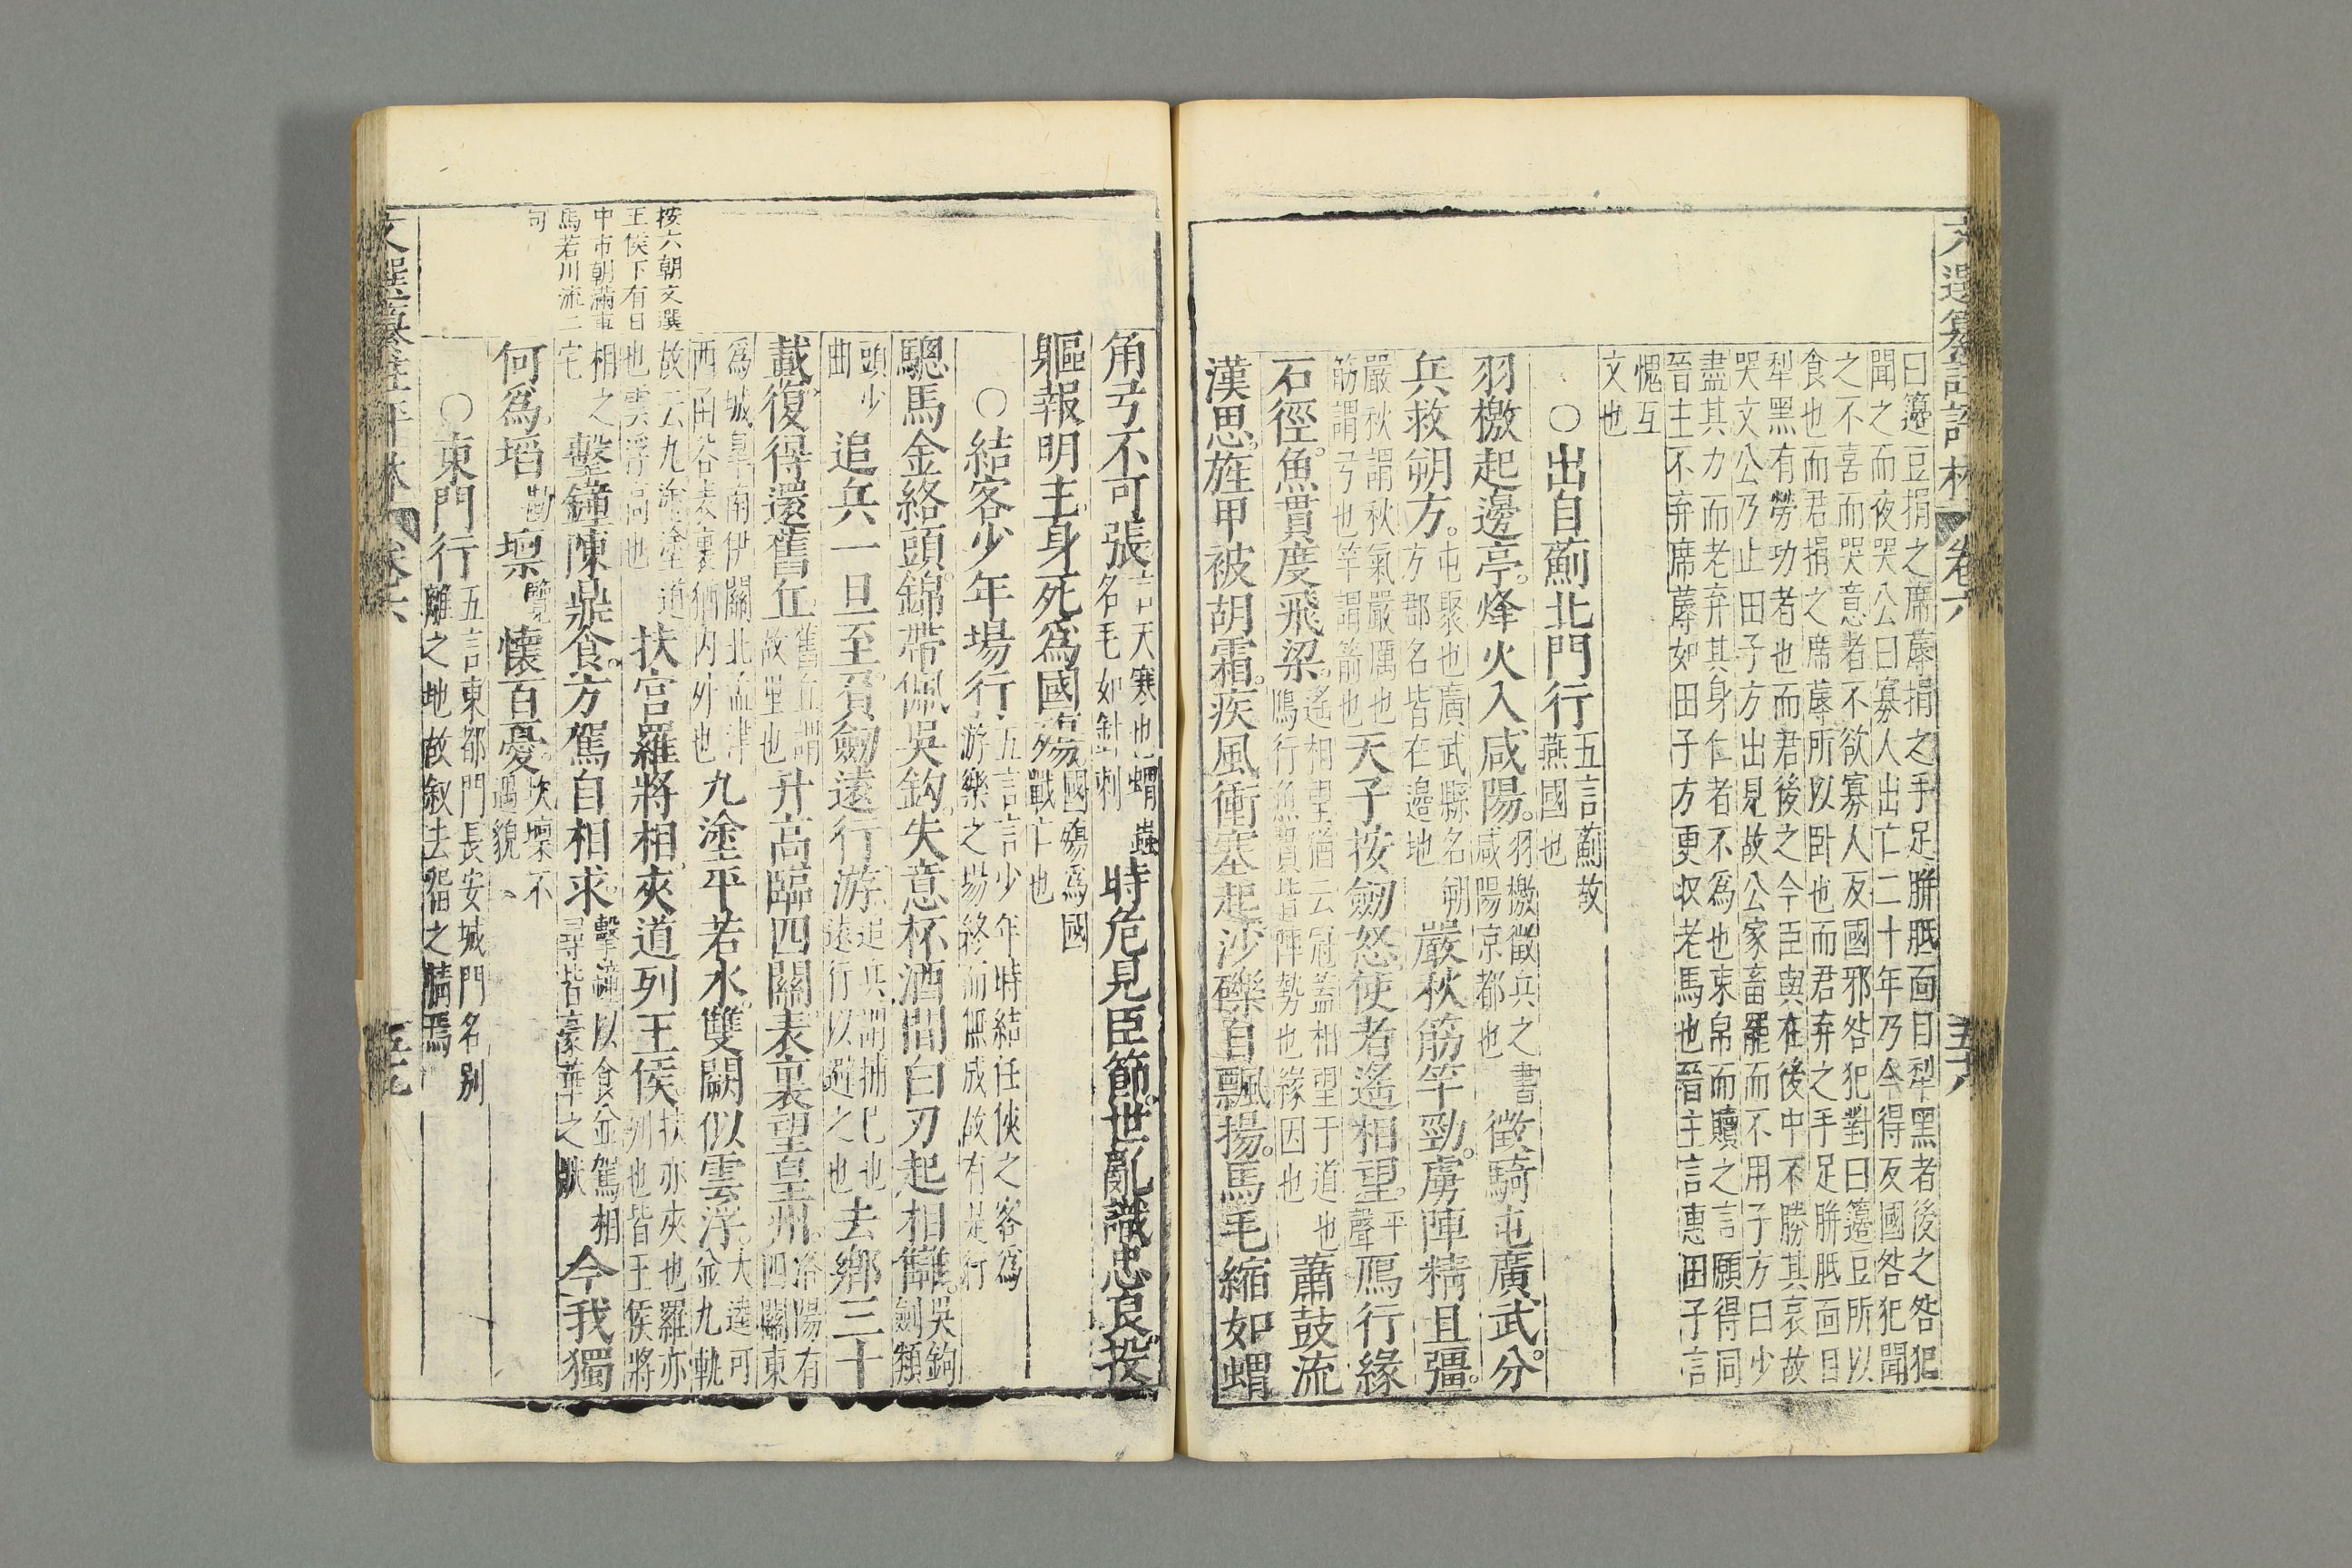 文選纂註評林 卷六 五六
曰籩豆捐之席蓐捐之手足胼胝面目犁黑者後之咎犯
聞之而夜哭公曰寡人出亡二十年乃今得反國咎犯聞
之不喜而哭意者不欲寡人反國邪咎犯對曰籩豆所以
食也而君捐之席蓐所以卧也而君弃之手足胼胝面目
犁黑有勞功者也而君後之今臣與在後中不勝其哀故
哭文公乃止田子方出見故公家畜罷而不用子方曰少
盡其力而老弃其身仁者不爲也束帛而贖之言願得同
晉主不弃席蓐如田子方更収老馬也晉主言惠田子言
愧互
文也
○出自薊北門行五言薊故
燕國也
羽檄起邊亭。烽火入咸陽。羽檄徵兵之書
咸陽京都也徵騎屯廣武。分
兵救朔方。屯聚也廣武縣名朔
方郡名皆在邊地嚴秋筋竿勁。虜陣精且彊。
嚴秋謂秋氣嚴厲也
筋謂弓也竿謂箭也天子按劒怒。使者遙相望。平
聲鴈行緣
石徑。魚貫度飛梁。遙相望猶云冠蓋相望于道也
鴈行魚貫皆陣勢也緣因也蕭鼓流
漢思。旌甲被胡霜。疾風衝塞起。沙礫自飄揚。馬毛縮如蝟
角弓不可張。言天寒也蝟蟲
名毛如針刺時危見臣節。世亂識忠良。投
軀報明主。身死爲國殤。國殤爲國
戰亡也
○結客少年場行五言言少年時結任俠之客爲
游樂之場終而無成故有是行
驄馬金絡頭。錦帶佩吳鈎。失意杯酒間。白刃起相讎。吳鉤
劍類
頭少
曲追兵一旦至。負劒遠行游。追兵謂捕已也
遠行以避之也去鄉三十
載。復得還舊丘。舊丘謂
故里也升高臨四關。表裏望皇州。洛陽有
四關東
爲城皐南伊闕北孟津
西函谷表裏猶内外也九塗平若水。雙闕似雲浮。大逵可
並九軌
故云九塗塗道
也雲浮高也扶宮羅將相。夾道列王侯。扶亦夾也羅亦
列也皆王侯將
相之
宅擊鐘陳鼎食。方駕自相求。擊鐘以食並駕相
尋皆豪華之狀今我獨
何爲。埳壈懷百憂。坎壈不
遇貌
○東門行五言東都門長安城門名别
離之地故叙去留之情焉
按六朝文選
王侯下有日
中市朝滿車
馬若川流二
句
文選纂註評林 卷六 五七